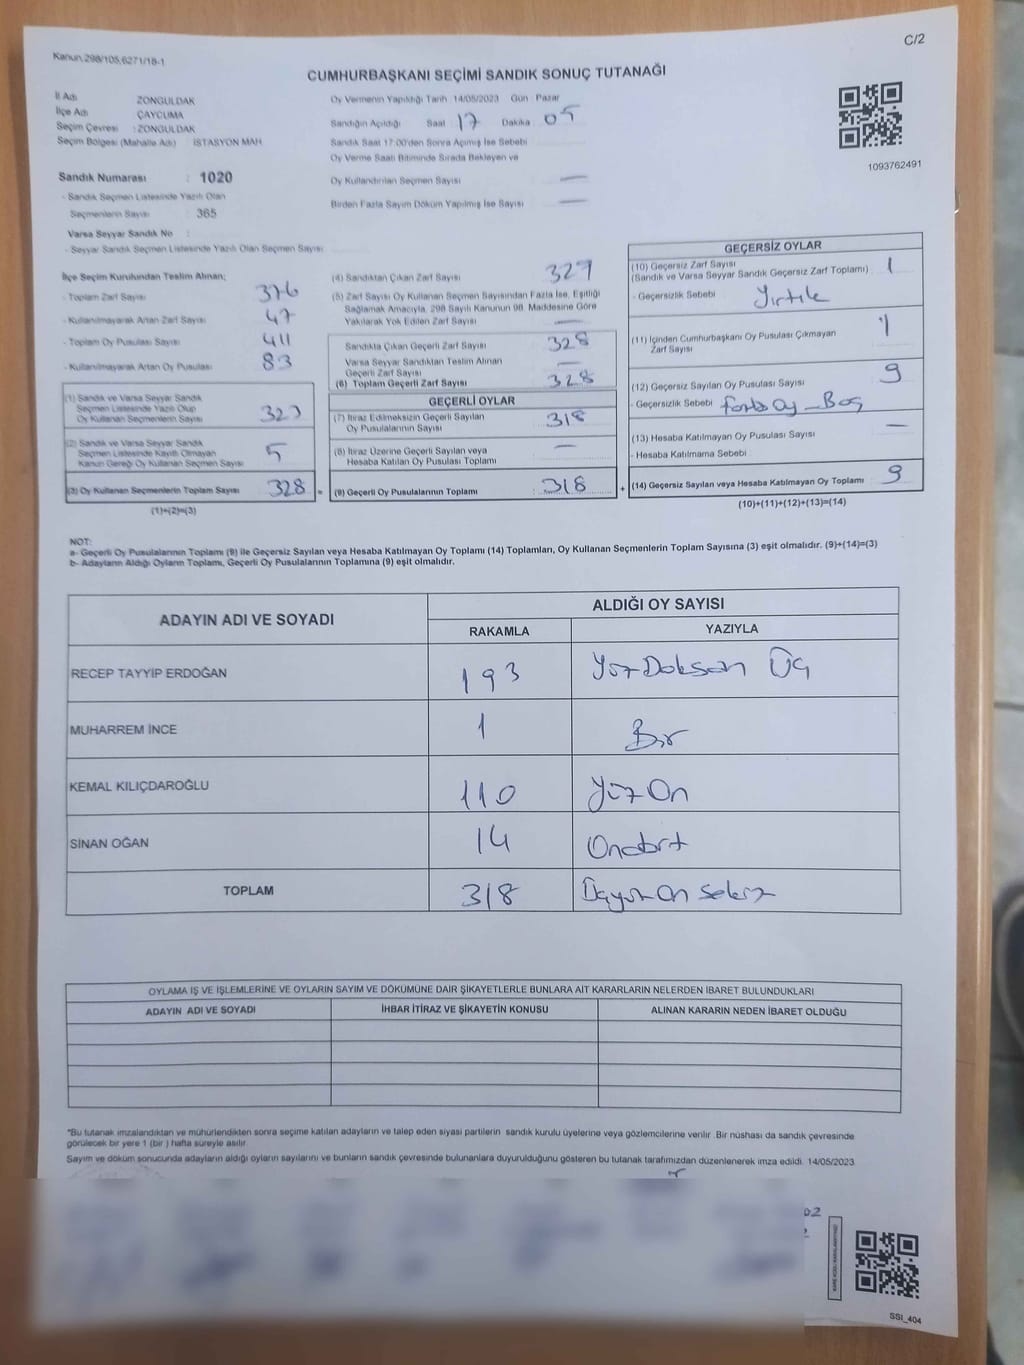 C/2
Kanun,298/105,6271/18-1
CUMHURBAŞKANI SEÇİMİ SANDIK SONUÇ TUTANAĞI
İl Adı ZONGULDAK
İlçe Adı ÇAYCUMA
Seçim Çevresi : ZONGULDAK
Seçim Bölgesi (Mahalle Adı) İSTASYON MAH
Sandık Numarası : 1020
- Sandık Seçmen Listesinde Yazılı Olan
Seçmenlerin Sayısı : 365
Varsa Seyyar Sandık No :
- Seyyar Sandık Seçmen Listesinde Yazılı Olan Seçmen Sayısı
Oy Vermenin Yapıldığı Tarih 14/05/2023 Gün Pazar
Sandığın Açıldığı Saat 17 Dakika 05
Sandık Saat 17.00'den Sonra Açımış İse Sebebi
Oy Verme Saati Bitiminde Sırada Bekleyen ve
Oy Kullandırılan Seçmen Sayısı —
Birden Fazla Sayım Döküm Yapılmış İse Sayısı —
1093762491
İlçe Seçim Kurulundan Teslim Alınan;
- Toplam Zarf Sayısı 376
- Kullanılmayarak Artan Zarf Sayısı 47
- Toplam Oy Pusulası Sayısı 411
- Kullanılmayarak Artan Oy Pusulası 83
(1) Sandık ve Varsa Seyyar Sandık
Seçmen Listesinde Yazılı Olup
Oy Kullanan Seçmenlerin Sayısı 323
(2) Sandık ve Varsa Seyyar Sandık
Seçmen Listesinde Kayıtlı Olmayan
Kanun Gereği Oy Kullanan Seçmen Sayısı 5
(3) Oy Kullanan Seçmenlerin Toplam Sayısı 328 =
(1)+(2)=(3)
(4) Sandıktan Çıkan Zarf Sayısı 329
(5) Zarf Sayısı Oy Kullanan Seçmen Sayısından Fazla İse, Eşitliği
Sağlamak Amacıyla, 298 Sayılı Kanunun 98. Maddesine Göre
Yakılarak Yok Edilen Zarf Sayısı —
Sandıkta Çıkan Geçerli Zarf Sayısı 328
Varsa Seyyar Sandıktan Teslim Alınan
Geçerli Zarf Sayısı —
(6) Toplam Geçerli Zarf Sayısı 328
GEÇERLİ OYLAR
(7) İtiraz Edilmeksizin Geçerli Sayılan
Oy Pusulalarının Sayısı 318
(8) İtiraz Üzerine Geçerli Sayılan veya
Hesaba Katılan Oy Pusulası Toplamı —
(9) Geçerli Oy Pusulalarının Toplamı 318 +
GEÇERSİZ OYLAR
(10) Geçersiz Zarf Sayısı 1
(Sandık ve Varsa Seyyar Sandık Geçersiz Zarf Toplamı)
- Geçersizlik Sebebi Yırtık
(11) İçinden Cumhurbaşkanı Oy Pusulası Çıkmayan
Zarf Sayısı 1
(12) Geçersiz Sayılan Oy Pusulası Sayısı 9
- Geçersizlik Sebebi fazla oy - Boş
(13) Hesaba Katılmayan Oy Pusulası Sayısı —
- Hesaba Katılmama Sebebi
(14) Geçersiz Sayılan veya Hesaba Katılmayan Oy Toplamı 9
(10)+(11)+(12)+(13)=(14)
NOT:
a- Geçerli Oy Pusulalarının Toplamı (9) ile Geçersiz Sayılan veya Hesaba Katılmayan Oy Toplamı (14) Toplamları, Oy Kullanan Seçmenlerin Toplam Sayısına (3) eşit olmalıdır. (9)+(14)=(3)
b- Adayların Aldığı Oyların Toplamı, Geçerli Oy Pusulalarının Toplamına (9) eşit olmalıdır.
ADAYIN ADI VE SOYADI ALDIĞI OY SAYISI
RAKAMLA YAZIYLA
RECEP TAYYİP ERDOĞAN 193 Yüz Doksan Üç
MUHARREM İNCE 1 Bir
KEMAL KILIÇDAROĞLU 110 Yüz On
SİNAN OĞAN 14 Ondört
TOPLAM 318 Üçyüz On Sekiz
OYLAMA İŞ VE İŞLEMLERİNE VE OYLARIN SAYIM VE DÖKÜMÜNE DAİR ŞİKAYETLERLE BUNLARA AİT KARARLARIN NELERDEN İBARET BULUNDUKLARI
ADAYIN ADI VE SOYADI İHBAR İTİRAZ VE ŞİKAYETİN KONUSU ALINAN KARARIN NEDEN İBARET OLDUĞU
*Bu tutanak imzalandıktan ve mühürlendikten sonra seçime katılan adayların ve talep eden siyasi partilerin sandık kurulu üyelerine veya gözlemcilerine verilir. Bir nüshası da sandık çevresinde
görülecek bir yere 1 (bir ) hafta süreyle asılır.
Sayım ve döküm sonucunda adayların aldığı oyların sayılarını ve bunların sandık çevresinde bulunanlara duyurulduğunu gösteren bu tutanak tarafımızdan düzenlenerek imza edildi. 14/05/2023
SSI_404